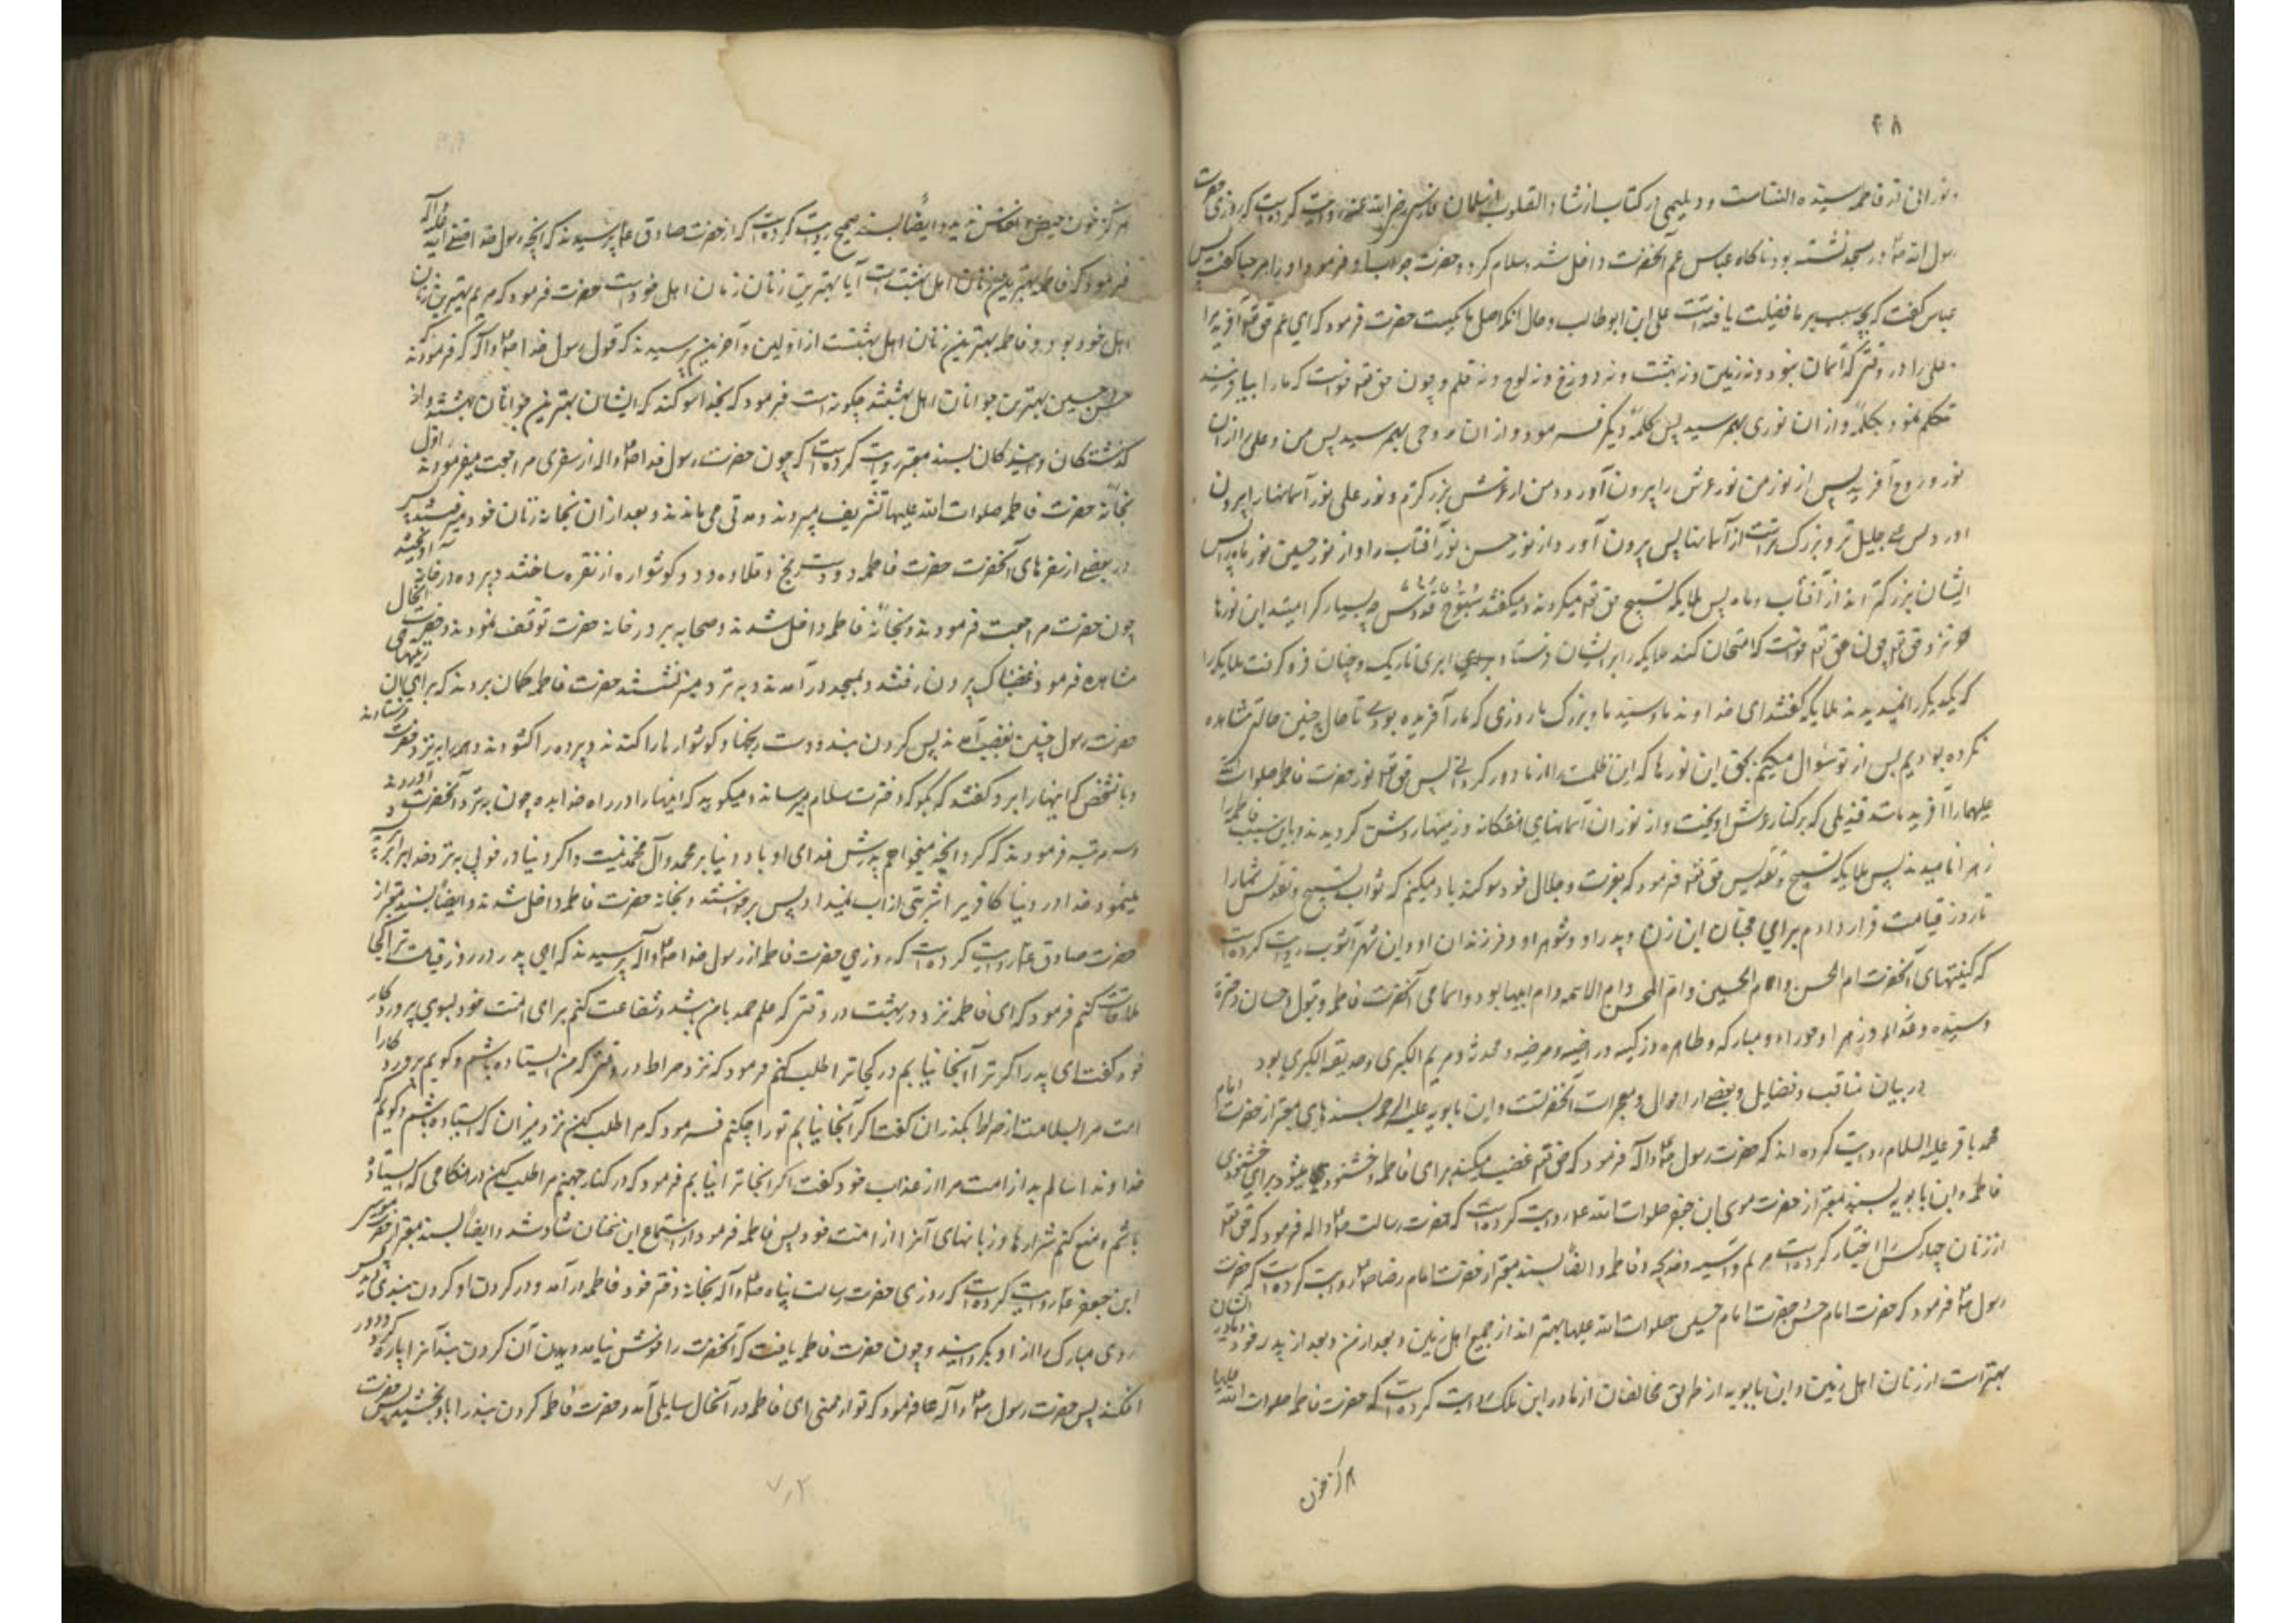 ۴۸
نورانی تر فاطمه سیده النساست و دیلمی در کتاب ارشاد القلوب از سلمان فارسی رضی الله عنه روایت کرده است که روزی حضرت
رسول الله ص در مسجد نشسته بود ناگاه عباس عم آنحضرت داخل شد و سلام کرد و حضرت جواب داد و فرمود او را مرحبا گفت پس
عباس گفت که بچه سبب بر ما فضیلت یافته است علی ابن ابوطالب و حال آنکه اصل ما یکیست حضرت فرمود که ای عم حق تعه آفرید مرا
و علی را در وقتی که آسمان نبود و نه زمین و نه بهشت و نه دوزخ و نه لوح و نه قلم و چون حق تعه خواست که ما را بیافریند
تکلم نمود بکلمه و از ان نوری بهم رسید پس بکلمه دیگر فرمود و از ان روحی بهم رسید پس من و علی را از ان
نور و روح آفرید پس از نور من نور عرش را بیرون آورد و من از عرش بزرگترم و نور علی نور آسمانها را بیرون
آورد پس علی جلیل تر و بزرگ تر است از آسمانها پس بیرون آورد از نور حسن نور آفتاب را و از نور حسین نور ماه را پس
ایشان بزرگتراند از آفتاب و ماه پس ملایکه تسبیح حق تعه میکردند و میگفتند سبوح قدوس چه بسیار گرامیند این نورها
نزد حق تعه چون حق تعه خواست که امتحان کند ملایکه را بر ایشان فرستاد ابری تاریک و چنان فرو گرفت ملایکه را
که یکدیگر را نمیدیدند ملایکه گفتند ای خداوند ما و سید ما و بزرگ ما از روزی که ما را آفریده بودی تا حال چنین حالتی مشاهده
نکرده بودیم پس از تو سئوال میکنیم بحق این نورها که این ظلمت را از ما دور گردانی پس حق تعه نور حضرت فاطمه صلوات الله
علیها را آفرید مانند قندیلی که بر کنار عرش آویخت و از نور ان آسمانهای هفتگانه و زمینها روشن گردیدند و باین سبب فاطمه را
زهرا نامیدند پس ملایکه تسبیح و تقدیس حق تعه فرمود که بعزت و جلال خود سوگند یاد میکنم که ثواب تسبیح و تقدیس شما را
تا روز قیامت قرار دادم برای محبان این زن و پدر او و شوهر او و فرزندان او و ابن شهرآشوب روایت کرده است
که کنیتهای آنحضرت ام الحسن و ام الحسین و ام المحسن و ام الائمه و ام ابیها بود و اسمای آنحضرت فاطمه و بتول و حصان و حره
و سیده و عذرا و زهرا و حورا و مبارکه و طاهره و زکیه و راضیه و مرضیه و محدثه و مریم الکبری و صدیقه الکبری بود
در بیان مناقب و فضایل و بعضی از احوال و معجزات آنحضرتست و ابن بابویه علیه الرحمه بسندهای معتبر از حضرت امام
محمد باقر علیه السلام روایت کرده اند که حضرت رسول ص و آله فرمود که حق تعه غضب میکند برای فاطمه و خشنود میشود برای خشنودی
فاطمه و ابن بابویه بسند معتبر از حضرت موسی ابن جعفر صلوات الله علیه روایت کرده است که حضرت رسالت ص و اله فرمود که حق تعه
از زنان چهار کس را اختیار کرده است مریم و آسیه و خدیجه و فاطمه و ایضا بسند معتبر از حضرت امام رضا روایت کرده است که حضرت
رسول ص فرمود که حضرت امام حسن و حضرت امام حسین صلوات الله علیهما بهتر اند از جمیع اهل زمین و بعد از من و بعد از پدر خود و مادر ایشان
بهتر است از زنان اهل زمین و ابن بابویه از طریق مخالفان از مادر انس ابن مالک روایت کرده است که حضرت فاطمه صلوات الله علیها
هرگز خون
هرگز خون حیض و نفاس ندید و ایضا بسند صحیح روایت کرده است که از حضرت صادق ع پرسیدند که آنچه رسول خدا صلی الله علیه و آله
فرمود که فاطمه بهترین زنان اهل بهشت است آیا بهترین زنان زنان اهل خود است حضرت فرمود که مریم بهترین زنان
اهل خود بود و فاطمه بهترین زنان اهل بهشت از اولین و آخرین پرسیدند که قول رسول خدا ص و آله که فرمودند که
حسن و حسین بهترین جوانان اهل بهشتند چگونه است فرمود که بخدا سوگند که ایشان بهترین جوانان بهشتند از
گذشتگان و آیندگان بسند معتبر روایت کرده است که چون حضرت رسول خدا ص و اله از سفری مراجعت میفرمودند اول
بخانه حضرت فاطمه صلوات الله علیها تشریف میبردند و مدتی می ماندند و بعد از ان بخانه زنان خود میرفتند پس
در بعضی از سفرهای آنحضرت حضرت فاطمه دو دست رنج و قلاده و دو گوشواره از نقره ساختند و پرده در خانه آویختند
چون حضرت مراجعت فرمودند و بخانه فاطمه داخل شدند و صحابه بر در خانه حضرت توقف نمودند و حضرت انحال
مشاهده فرمود غضبناک بیرون رفتند و بمسجد درآمدند و بر نزد منبر نشستند حضرت فاطمه گمان بردند که برای ان زینتها
حضرت رسول چنین بغضب آمدند پس گردن بند و دست رنجها و گوشوار ها را کندند و پرده را گشودند و همه را به نزد حضرت فرستادند
و با شخص که اینها را برد گفتند که بگو که دخترت سلام میرساند و میگوید که اینها را در راه خدا بده چون به نزد آنحضرت آوردند
سه مرتبه فرمودند که کرد آنچه میخواهم پدرش فدای او باد دنیا بر محمد و آل محمد نیست و اگر دنیا در خوبی به نزد خدا برابر پر
میبود خدا در دنیا کافر را شربتی از آب نمیداد پس برخواستند و بخانه حضرت فاطمه داخل شدند و ایضا بسند معتبر از
حضرت صادق ع روایت کرده است که روزی حضرت فاطمه از رسول خدا ص و آله پرسیدند که ای پدر در روز قیامت ترا کجا
ملاقات کنم فرمود که ای فاطمه نزد در بهشت در وقتی که علم حمد با من باشد و شفاعت کنم برای امت خود بسوی پروردگار
خود گفت ای پدر اگر ترا آنجا نیابم در کجا ترا طلب کنم فرمود که نزد صراط در وقتی که من ایستاده باشم و گویم پروردگارا
امت مرا بسلامت از صراط بگذران گفت اگر آنجا نیابم تو را چکنم فرمود که مرا طلب کن نزد میزان که ایستاده باشم و گویم که
خداوندا سالم بدار امت مرا از عذاب خود گفت اگر آنجا ترا نیابم فرمود که در کنار جهنم مرا طلب کن در هنگامی که ایستاده
باشم و منع کنم شرارها و زبانهای آنرا از امت خود پس فاطمه فرمود از استماع این سخنان شاد شد و ایضا بسند معتبر از حضرت موسی
ابن جعفر ع روایت کرده است که روزی حضرت رسالت پناه ص و آله بخانه دختر خود فاطمه درآمد و در گردن او گردن بندی دید پس
روی مبارک را از او بگردانید و چون حضرت فاطمه یافت که آنحضرت را خوش نیامد دیدن آن گردن بند آنرا پاره کرد و دور
افکند پس حضرت رسول ص و آله فرمود که تو از منی ای فاطمه در آنحال سایلی آمد و حضرت فاطمه گردن بند را باو بخشید پس حضرت